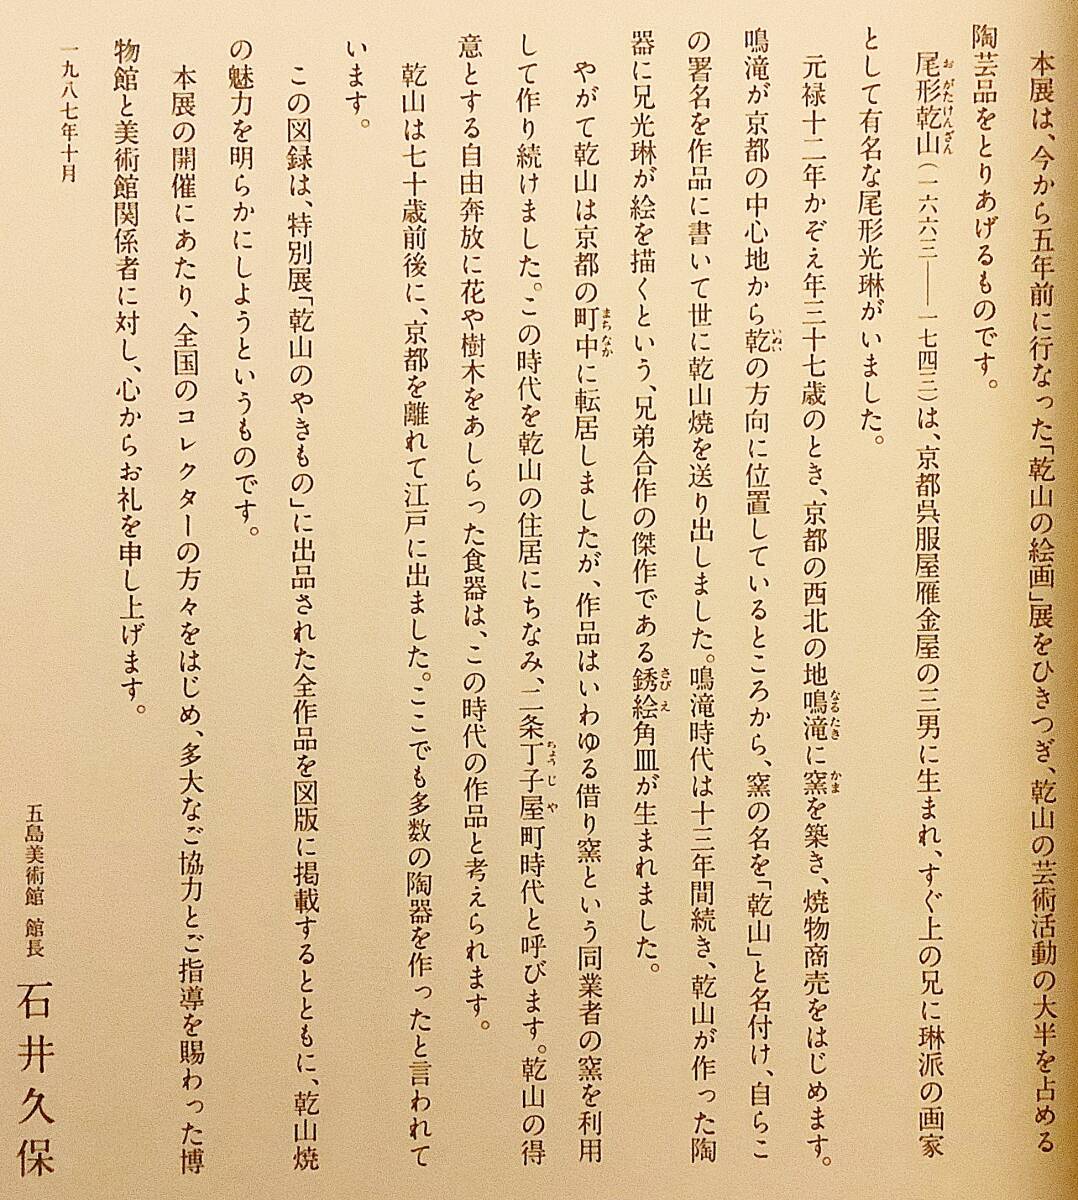 本展は、今から五年前に行なった「乾山の絵画」展をひきつぎ、乾山の芸術活動の大半を占める
陶芸品をとりあげるものです。
尾形乾山（一六六三──一七四三）は、京都呉服屋雁金屋の三男に生まれ、すぐ上の兄に琳派の画家
として有名な尾形光琳がいました。
元禄十二年かぞえ年三十七歳のとき、京都の西北の地鳴滝に窯を築き、焼物商売をはじめます。
鳴滝が京都の中心地から乾の方向に位置しているところから、窯の名を「乾山」と名付け、自らこ
の署名を作品に書いて世に乾山焼を送り出しました。鳴滝時代は十三年間続き、乾山が作った陶
器に兄光琳が絵を描くという、兄弟合作の傑作である銹絵角皿が生まれました。
やがて乾山は京都の町中に転居しましたが、作品はいわゆる借り窯という同業者の窯を利用
して作り続けました。この時代を乾山の住居にちなみ、二条丁子屋町時代と呼びます。乾山の得
意とする自由奔放に花や樹木をあしらった食器は、この時代の作品と考えられます。
乾山は七十歳前後に、京都を離れて江戸に出ました。ここでも多数の陶器を作ったと言われて
います。
この図録は、特別展「乾山のやきもの」に出品された全作品を図版に掲載するとともに、乾山焼
の魅力を明らかにしようというものです。
本展の開催にあたり、全国のコレクターの方々をはじめ、多大なご協力とご指導を賜わった博
物館と美術館関係者に対し、心からお礼を申し上げます。
一九八七年十月
五島美術館 館長 石井久保